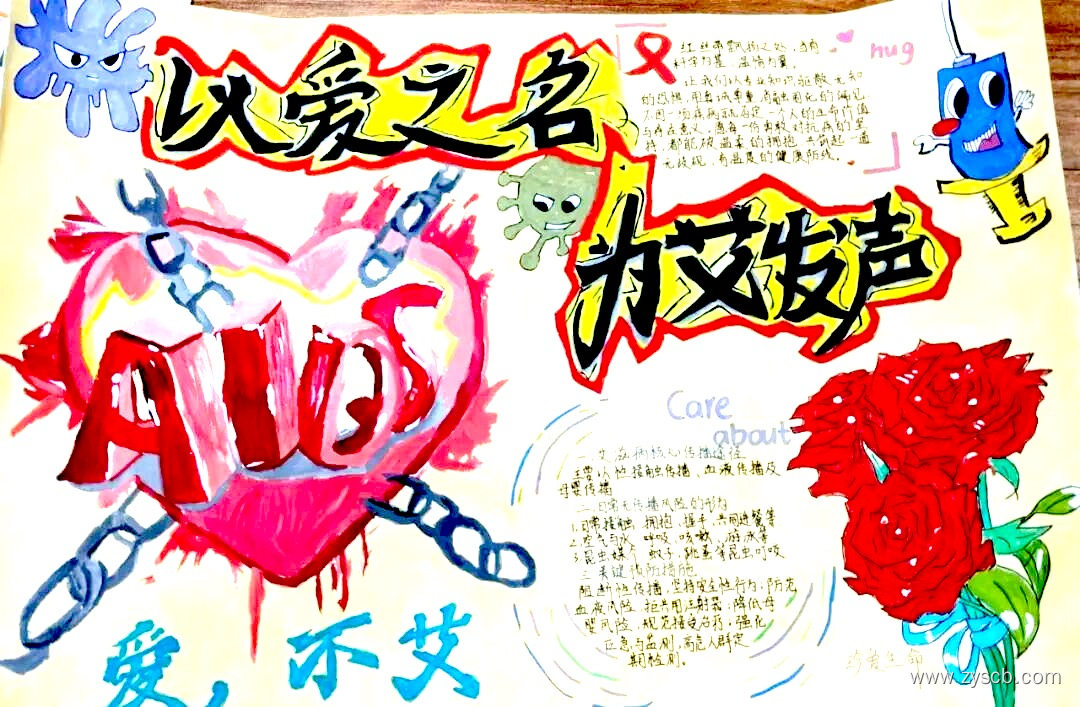 以爱之名
为艾发声
hug
红丝带飘扬之处，当有
科学为基，温情为翼。
让我们以专业知识驱散无知
的恐惧，用真诚尊重消融固化的偏见
不因一项疾病就否定一个人的生命价值
与存在意义，愿每一份勇敢对抗病的坚
持，都能被温柔的拥抱，共筑起一道
无歧视、有温度的健康防线。
AIDS
Care
about
一.艾滋病核心传播途径
主要以性接触传播、血液传播及
母婴传播
二.日常无传播风险的行为
1.日常接触 拥抱、握手、共同进餐等
2.空气与水 呼吸、咳嗽、游泳等
3.昆虫媒介 蚊子、跳蚤等昆虫叮咬
三.关键预防措施
阻断性传播，坚持安全性行为，防范
血液风险，拒共用注射器，降低母
婴风险，规范接受治疗，强化
应急与监测，高危人群定
期检测。
爱，不艾
珍爱生命
www.zyscb.com